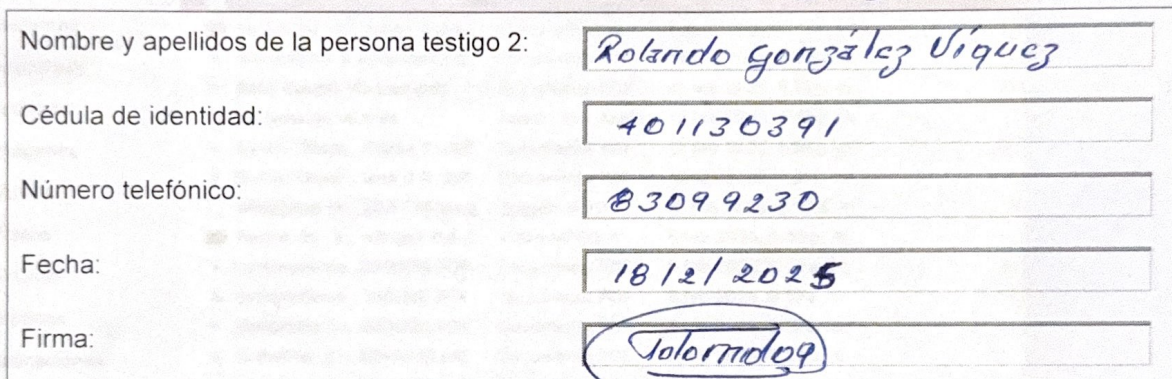 Nombre y apellidos de la persona testigo 2: Rolando González Víquez
Cédula de identidad: 401130391
Número telefónico: 83099230
Fecha: 18/2/2025
Firma: